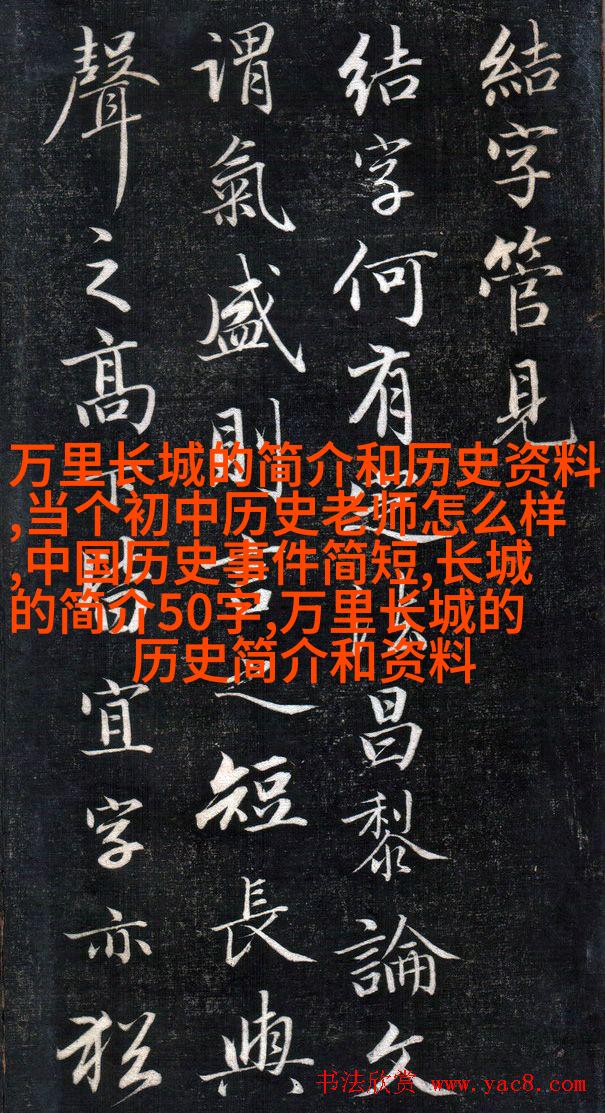 結字管見
結字何有法昌黎論文
謂氣盛則言之短長與
聲之高下皆宜字亦猶
万里长城的简介和历史资料
,当个初中历史老师怎么样
,中国历史事件简短,长城
的简介50字,万里长城的
历史简介和资料
书法欣赏 www.yac8.com